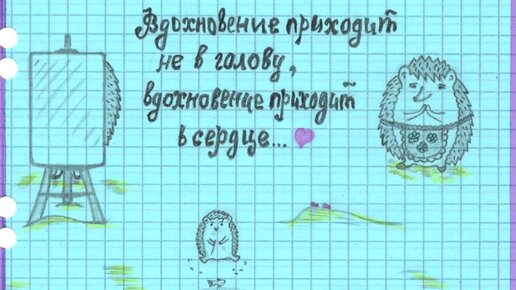 Вдохновение приходит
не в голову,
вдохновение приходит
в сердце...